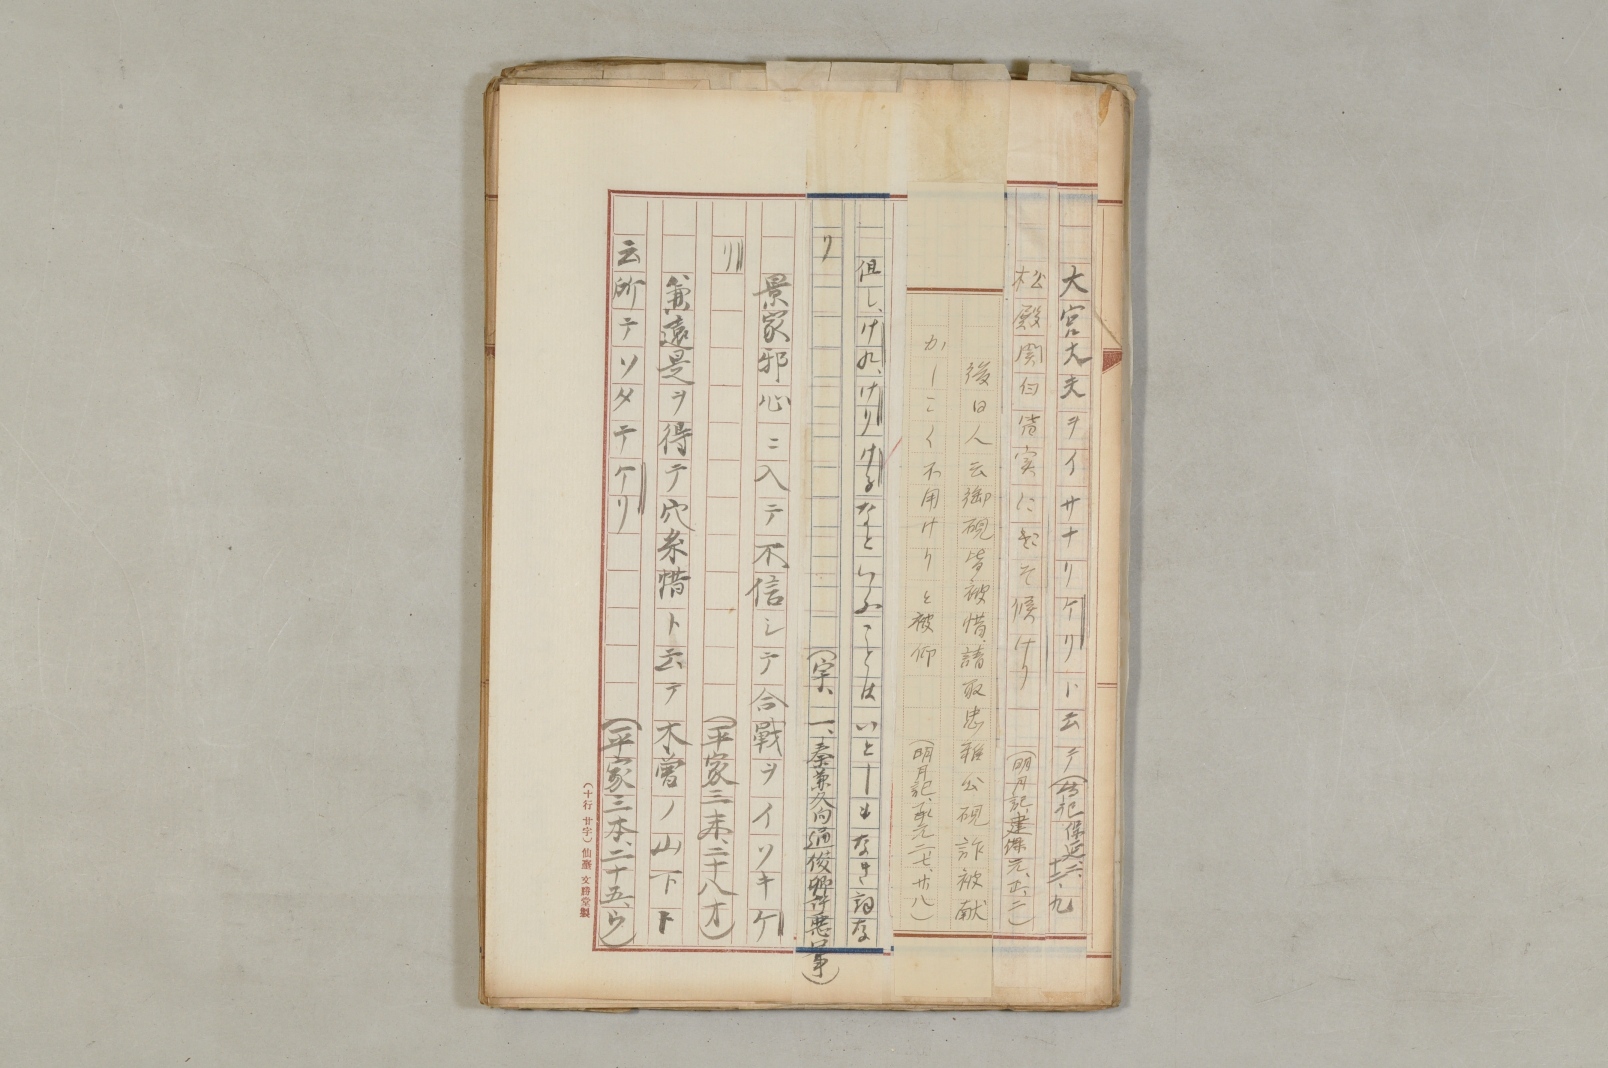 大宮大夫ヲイサナリケリト云テ(台記保延二、十二、九
松殿関白借実にこそ候けり (明月記、建保元、正、二)
後日人云御硯皆被惜、請取忠雅公硯詐被献
かしこく不用けりと被仰 (明月記、承元二七、廿八)
但し、けれ、けり、けるなといふことはいとしもなき詞な
り (字、一、秦兼久向通俊卿許悪口事)
景家邪心ニ入テ不信シテ合戰ヲイソキケ
リ (平家三末、二十八オ)
兼遠是ヲ得テ穴糸惜ト云テ木曽ノ山下ト
云所テソタテケリ (平家三本、二十五、ウ)
(十行 廿字) 仙臺 文勝堂製